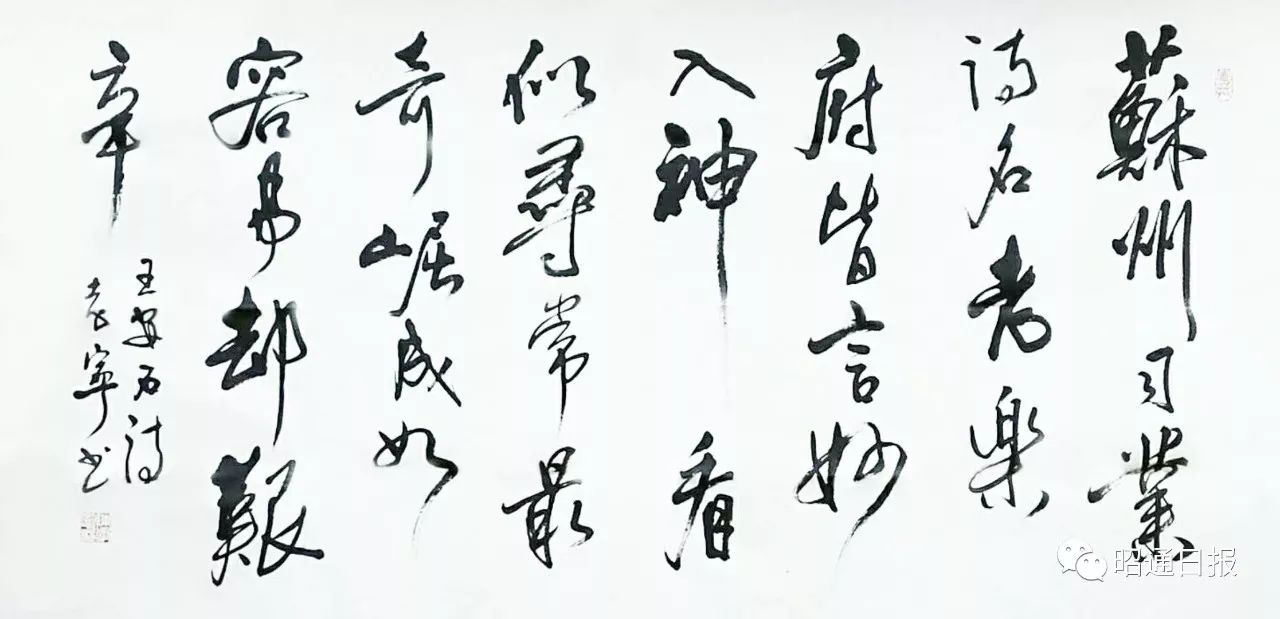 蘇州司業
詩名老樂
府皆言妙
入神看
似尋常最
奇崛成如
容易却艱
辛
王安石詩
老寧书
昭通日报